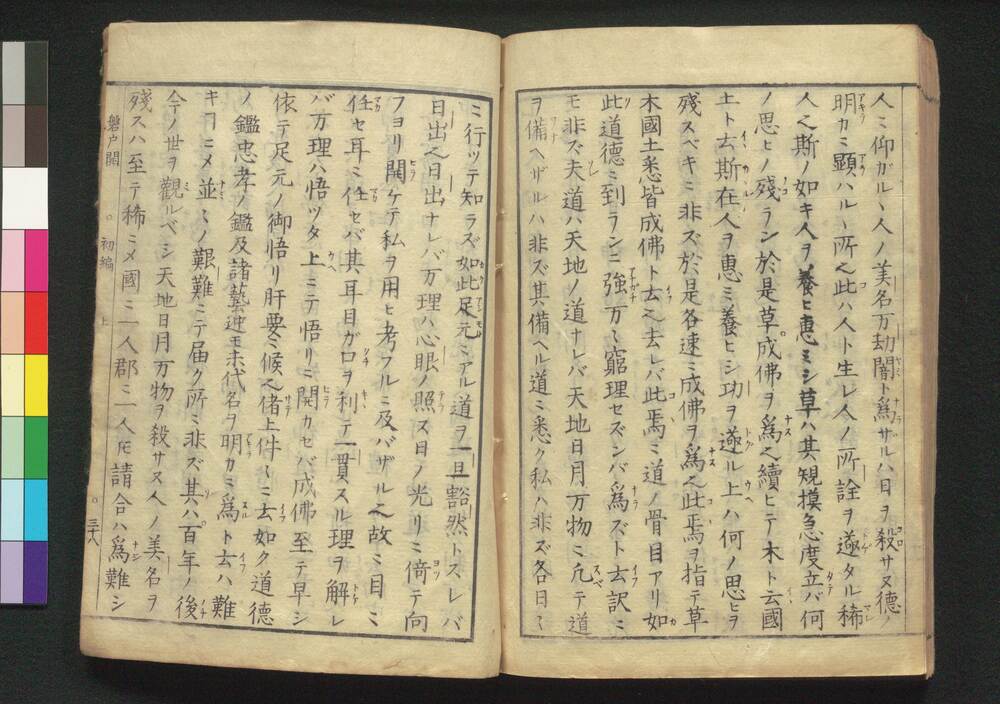 人ミ仰ガルヽ人ノ美名万劫闇ト爲ザルハ日ヲ殺サヌ德ノ
明カミ顯ハルヽ所之此ハ人ト生レ人ノ所詮ヲ遂タル稀
人之斯ノ如キ人ヲ養ヒ惠ミシ草ハ其規摸急度立バ何
ノ思ヒノ殘ラン於是草成佛ヲ爲之續ヒテ木ト云國
土ト去斯在人ヲ惠ミ養ヒシ功ヲ遂ル上ハ何ノ思ヒヲ
殘スベキミ非ズ於是各速ミ成佛ヲ爲之此焉ヲ指テ草
木國土悉皆成佛ト去之去レバ此焉ミ道ノ骨目アリ如
此道德ミ到ランニ強万ミ窮理セズンバ爲ズト去訳ミ
モ非ズ夫道ハ天地ノ道ナレバ天地日月万物ミ凢テ道
ヲ備ヘザルハ非ズ其備ヘル道ミ悉ク私ハ非ズ各日ミ
ミ行ツテ知ラズ如此足元ミアル道ヲ一旦豁然トスレバ
日出之日出ナレバ万理ハ心眼ノ照ス日ノ光リミ倚テ向
フヨリ開ケテ私ヲ用ヒ考フルミ及バザル之故ミ目ミ
任セ耳ミ任セバ其耳目ガ口ヲ利テ一貫スル理ヲ解レ
バ万理ハ悟ツタ上ミテ悟リミ開カセバ成佛至テ早シ
依テ足元ノ御悟リ肝要ミ候之偖上件ミミ去如ク道德
ノ鑑忠孝ノ鑑及諸藝迚モ末代名ヲ明カミ爲ト去ハ難
キヿニメ並ミノ艱難ミテ届ク所ミ非ズ其ハ百年ノ後
今ノ世ヲ觀ルベシ天地日月万物ヲ殺サヌ人ノ美名ヲ
殘スハ至テ稀ミメ國ミ一人郡ミ一人𪜈請合ハ爲難シ
磐戸開　初編　上　三十八